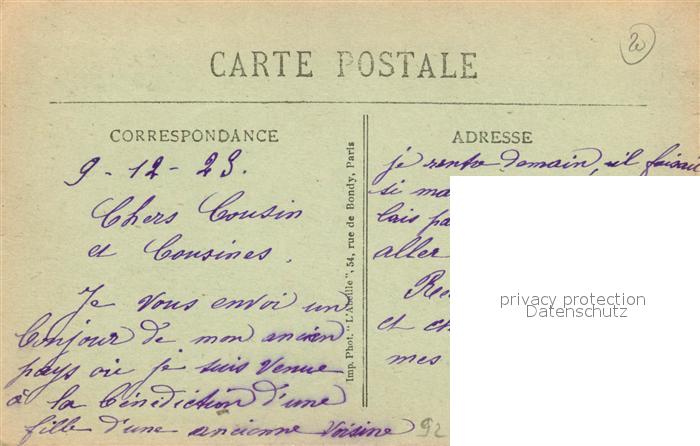 20
CARTE POSTALE
CORRESPONDANCE
9-12-23.
Chers Cousin
et Cousines.
Je vous envoi un
bonjour de mon ancien
pays où je suis venue
à la bénédiction d'une
fille d'une ancienne voisine
92
Imp. Phot. "L'Abeille"; 54, rue de Bondy, Paris
ADRESSE
je rentre demain, il faisait
si
lais
aller
et
mes
privacy protection
Datenschutz